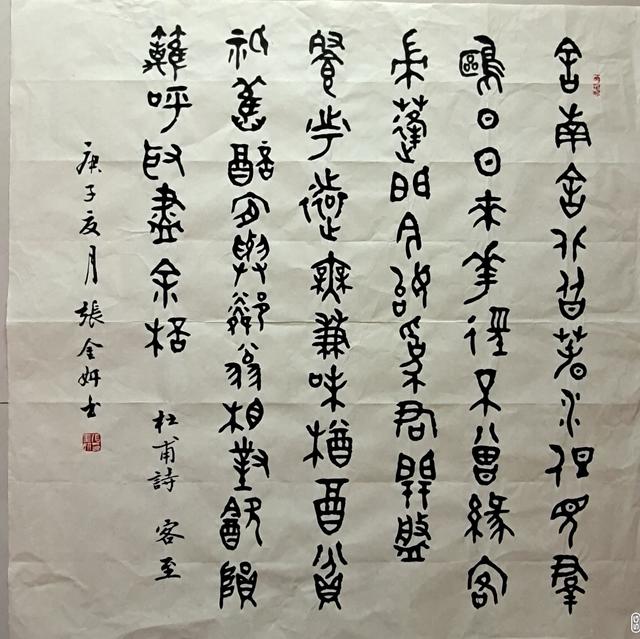 舍南舍北皆春水但見群
鷗日日來花徑不曾緣客
掃蓬門今始為君開盤
飧市遠無兼味樽酉貧
祇舊醅肯與鄰翁相對飲隔
籬呼取盡余杯
杜甫詩 客至
庚子夏月張金妍书